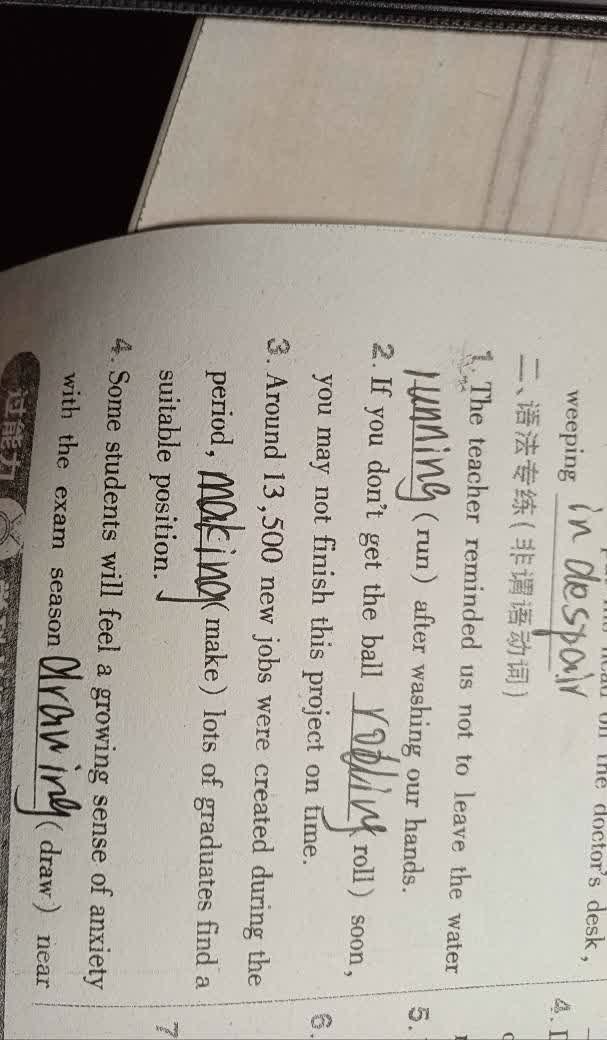 weeping in despair
the doctor's desk,
二、语法专练(非谓语动词)
1. The teacher reminded us not to leave the water
running (run) after washing our hands.
2. If you don't get the ball rolling (roll) soon,
you may not finish this project on time.
3. Around 13,500 new jobs were created during the
period, making (make) lots of graduates find a
suitable position.
4. Some students will feel a growing sense of anxiety
with the exam season drawing (draw) near
过能力
4.
5.
6.
7